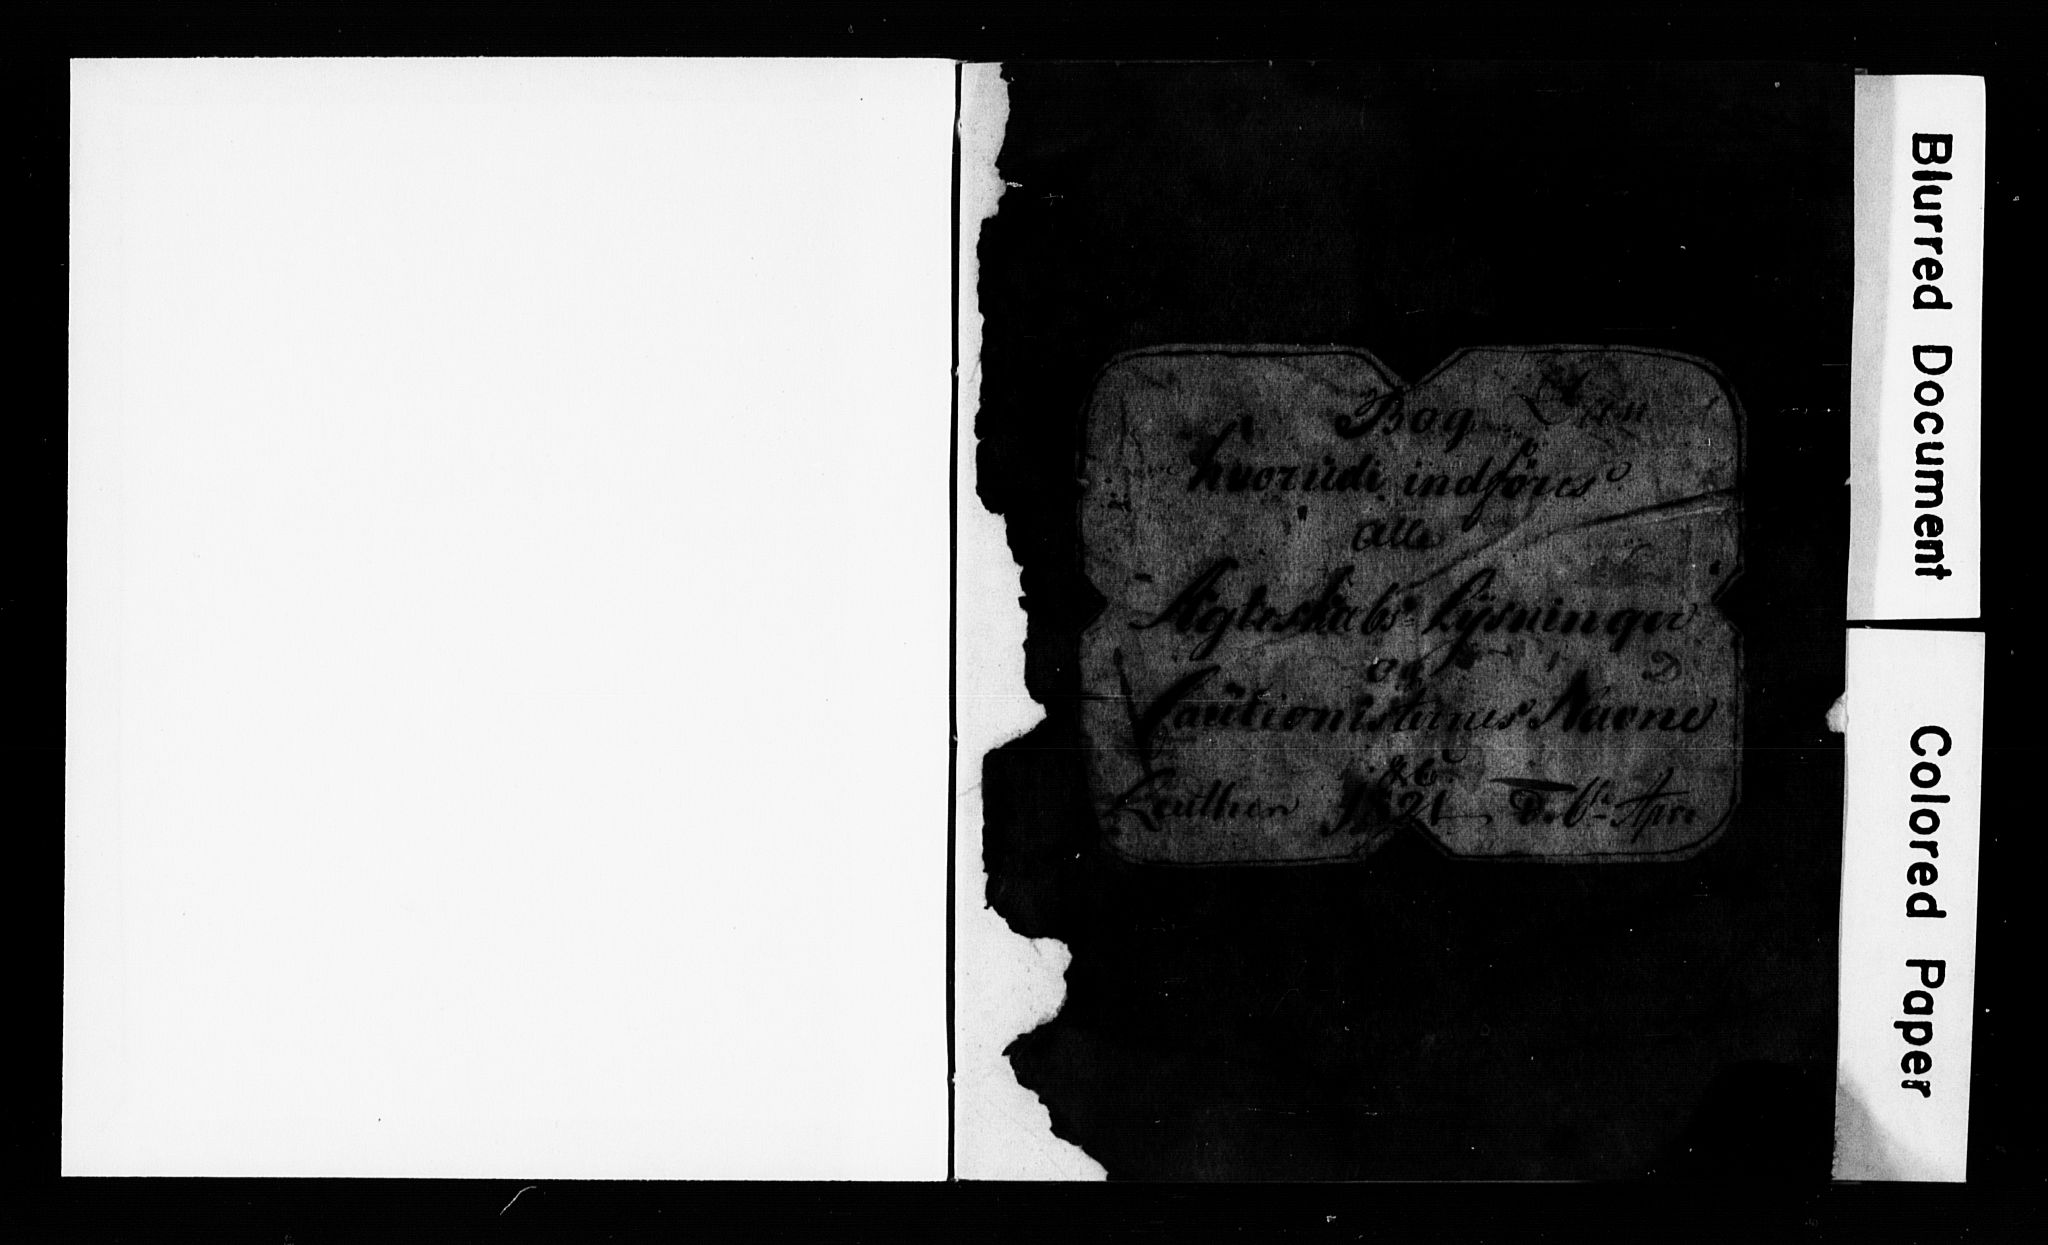 Bog
hvorüdi indføres
alle
Ægteskabs Lysninger
og
Caütionisternes Navne
1821 D. 6te Apr.
Blurred Document
Colored Paper